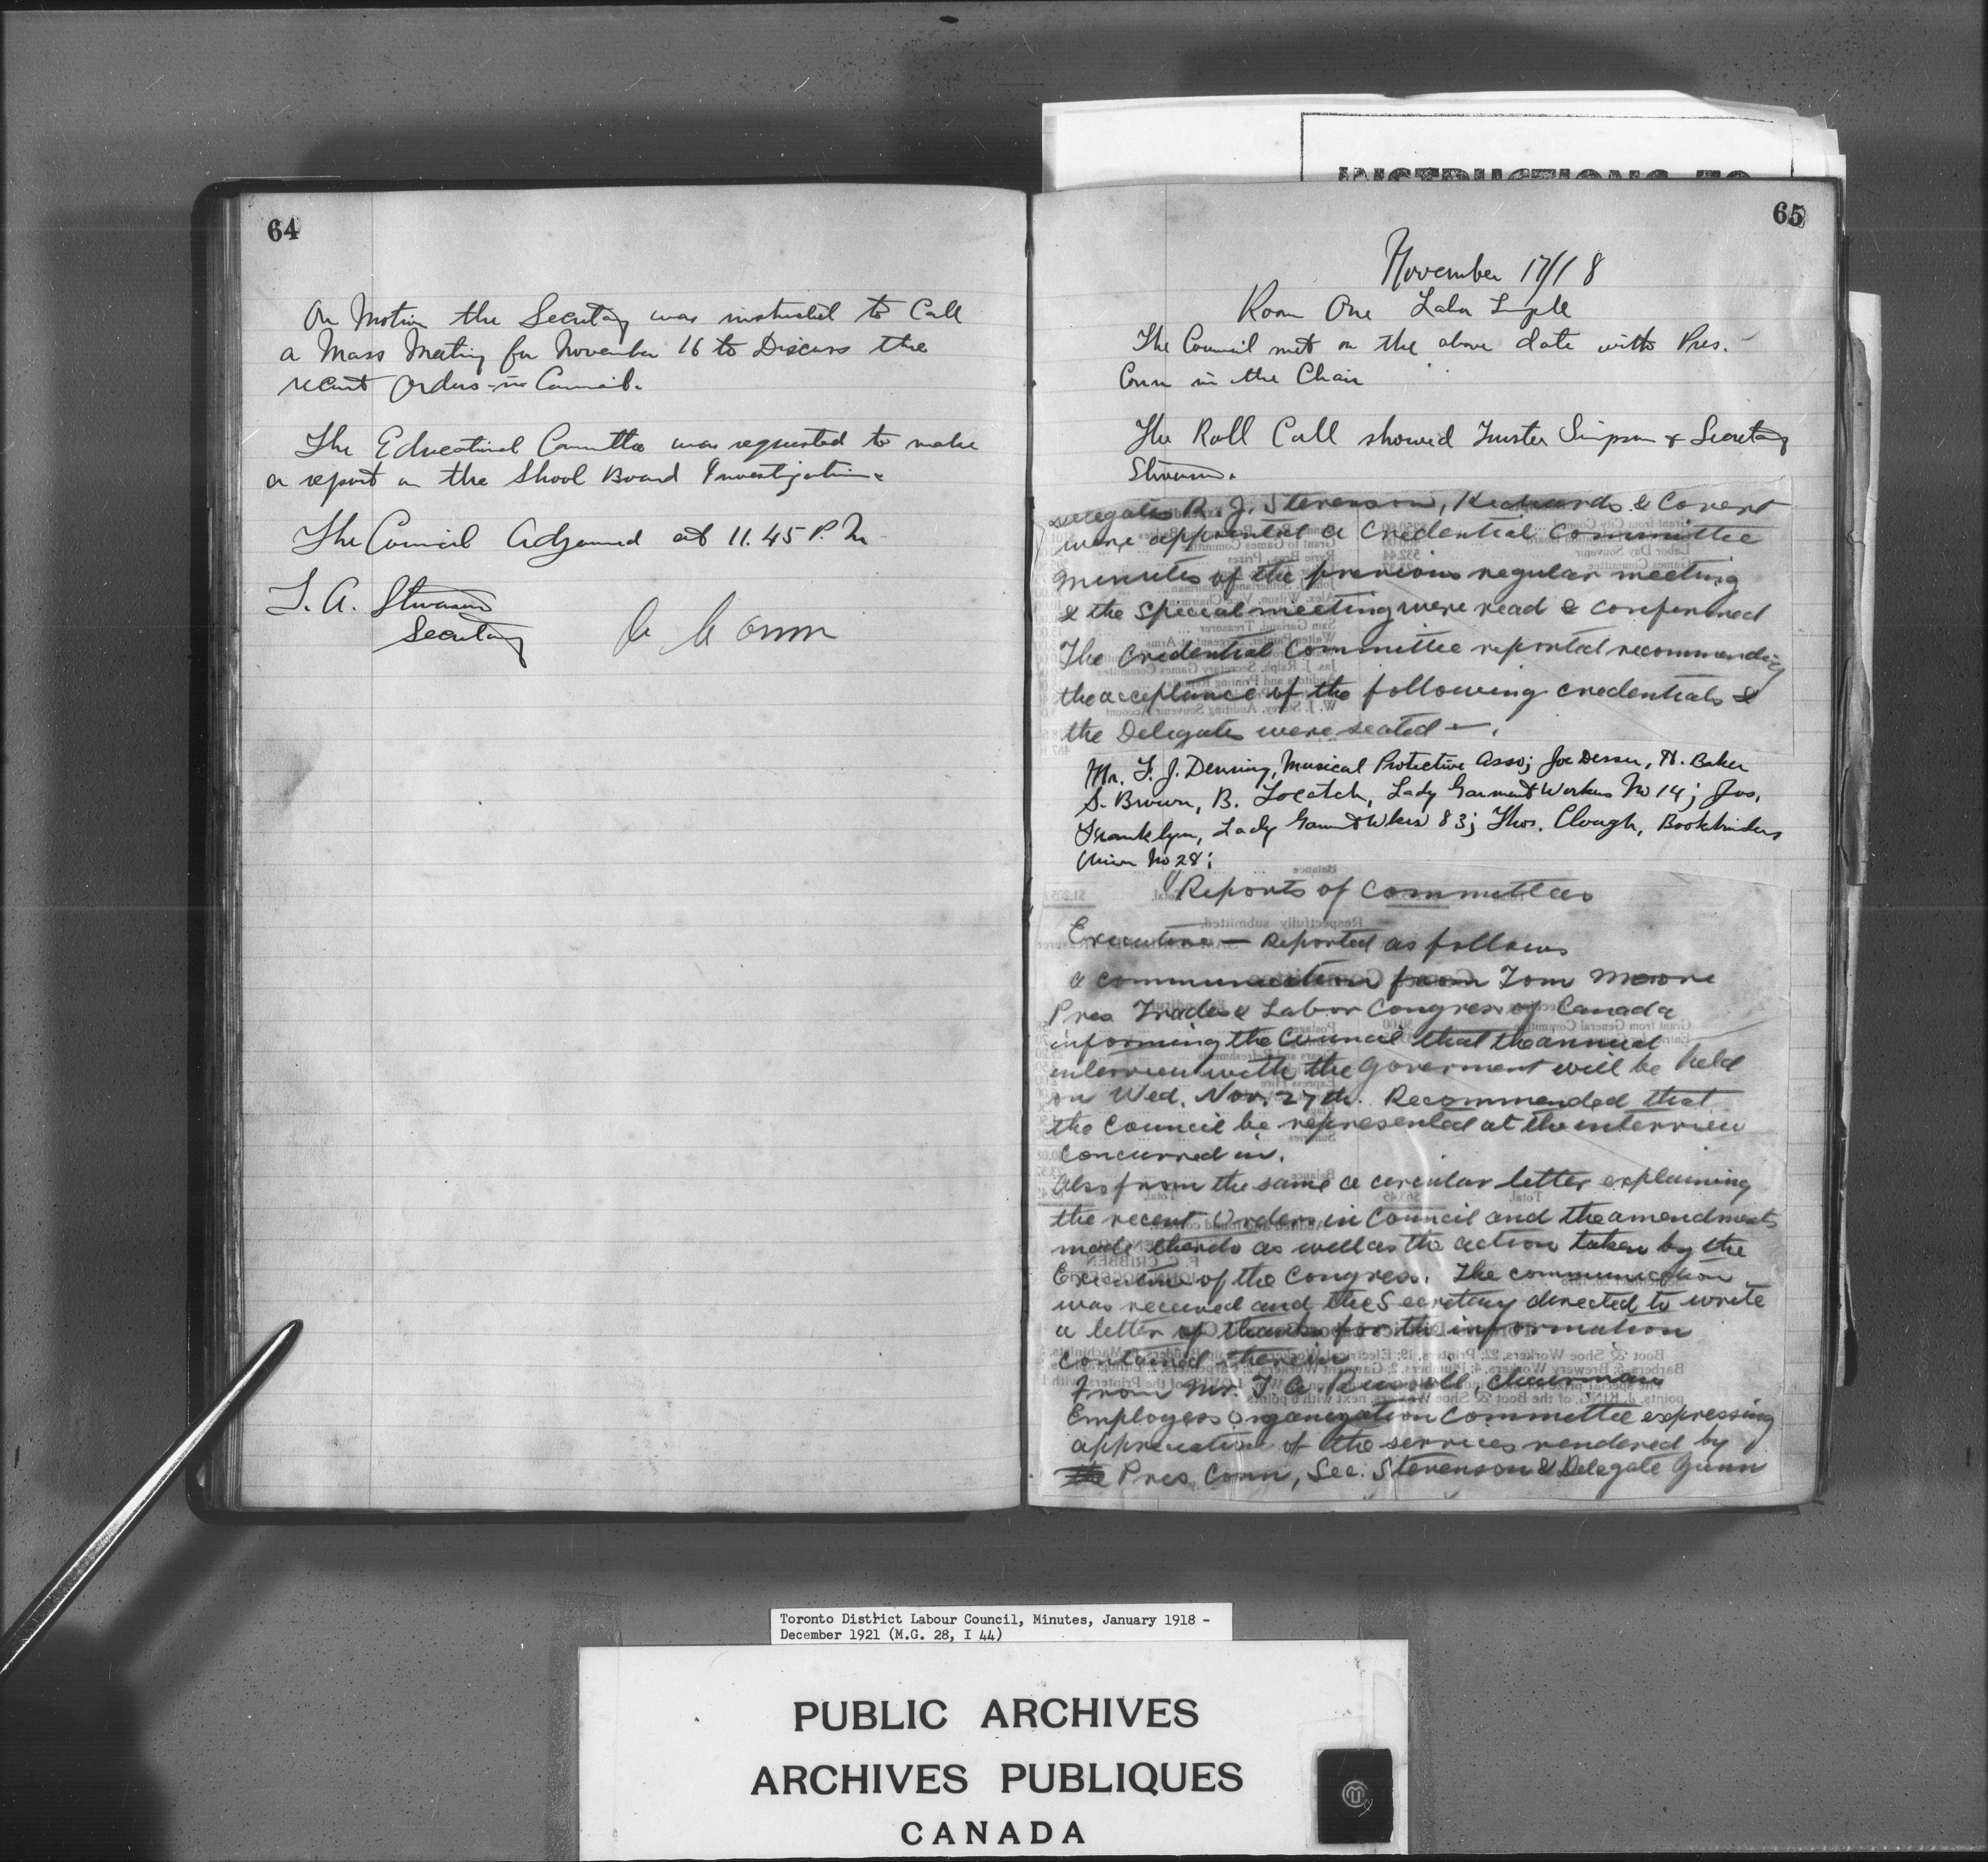 64
On Motion the Secretary was instructed to Call
a Mass Meeting for November 16 to Discuss the
recent Orders-in Council.
The Educational Committee was requested to make
a report on the Shool Board Investigation.
The Council Adjourned at 11.45 P.M
T. A. Stevenson
Secretary
A Conn
INSTRUCTIONS TO
65
November 17/18
Room One Labor Temple
The Council met on the above date with Pres.
Conn in the Chair
The Roll Call showed Trustee Simpson & Secretary
Stevenson.
Delegates R. J. Stevenson, Richards & Covert
were appointed a Credential Committee
Minutes of the previous regular meeting
& the special meeting were read & confirmed
The Credential Committee reported recommending
the acceptance of the following credentials &
the Delegates were seated —
Mr. F. J. Denning, Musical Protective Asso; Joe Desser, H. Baker
S. Brown, B. Locatch, Lady Garment Workers No 14; Jos.
Franklyn, Lady Garmt Wkers 83; Thos. Clough, Bookbinders
Union No 28;
Reports of Committees
Executive — Reported as follows
a communication from Tom Moore
Pres Trades & Labor Congress of Canada
informing the Council that the annual
interview with the Goverment will be held
on Wed. Nov. 27th. Recommended that
the Council be represented at the interview
Concurred in.
Also from the same a circular letter explaining
the recent Orders in Council and the amendments
made thereto as well as the action taken by the
Executive of the Congress. The communication
was received and the Secretary directed to write
a letter of thanks for the information
contained therein
From Mr. T A Russell, Chairman
Employers Organization Committee expressing
appreciation of the services rendered by
the Pres. Conn, Sec. Stevenson & Delegate Gunn
Toronto District Labour Council, Minutes, January 1918 -
December 1921 (M.G. 28, I 44)
PUBLIC ARCHIVES
ARCHIVES PUBLIQUES
CANADA